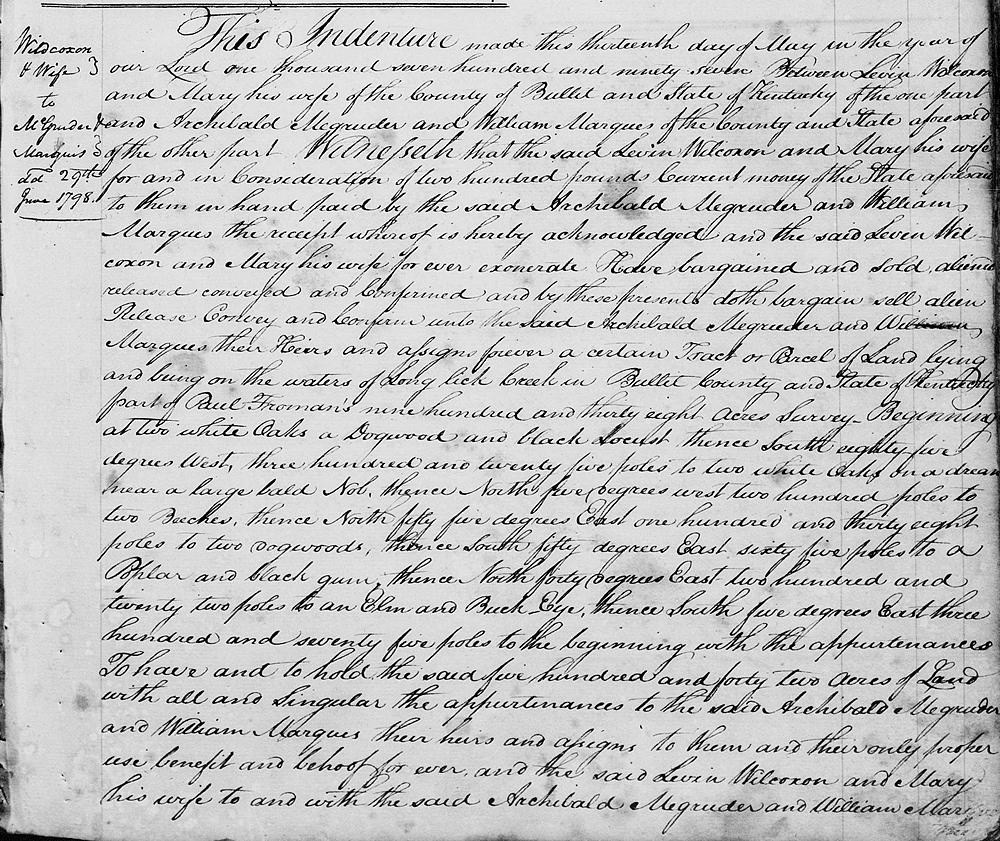 Wildcoxon
& Wife
to
McGruder &
Marquis
29th
June 1798.
This Indenture made this thirteenth day of May in the year of
our Lord one thousand seven hundred and ninety seven Between Levin Wilcoxon
and Mary his wife of the County of Bullit and State of Kentucky of the one part
and Archibald Megruder and William Marques of the County and State aforesaid
of the other part Witnesseth that the said Levin Wilcoxon and Mary his wife
for and in Consideration of two hundred pounds Current money of the State aforesaid
to them in hand paid by the said Archibald Megruder and William
Marques the receipt whereof is hereby acknowledged and the said Leven Wil-
coxon and Mary his wife for ever exonerate Have bargained and sold, aliend
released conveyed and Confirmed and by these presents doth bargain sell alien
Release Convey and Confirm unto the said Archibald Megruder and William
Marques their Heirs and assigns forever a certain Tract or Parcel of Land lying
and being on the waters of Long lick Creek in Bullit County and State of Kentucky
part of Paul Froman's nine hundred and thirty eight Acres Survey - Beginning
at two white Oaks a Dogwood and black Locust thence South eighty five
degrees West, three hundred and twenty five poles to two white Oaks on a drean
near a large bald Nob, thence North five degrees west two hundred poles to
two Beeches, thence North fifty five degrees East one hundred and thirty eight
poles to two dogwoods, thence South fifty degrees East sixty five poles to a
Pophlar and black gum, thence North forty degrees East two hundred and
twenty two poles to an Elm and Buck Eye, thence South five degrees East three
hundred and seventy five poles to the beginning with the appurtenances
To have and to hold the said five hundred and forty two acres of Land
with all and Singular the appurtenances to the said Archibald Megruder
and William Marques their heirs and assigns to them and their only proper
use, benefit and behoof for ever, and the said Levin Wilcoxon and Mary
his wife to and with the said Archibald Megruder and William Marques